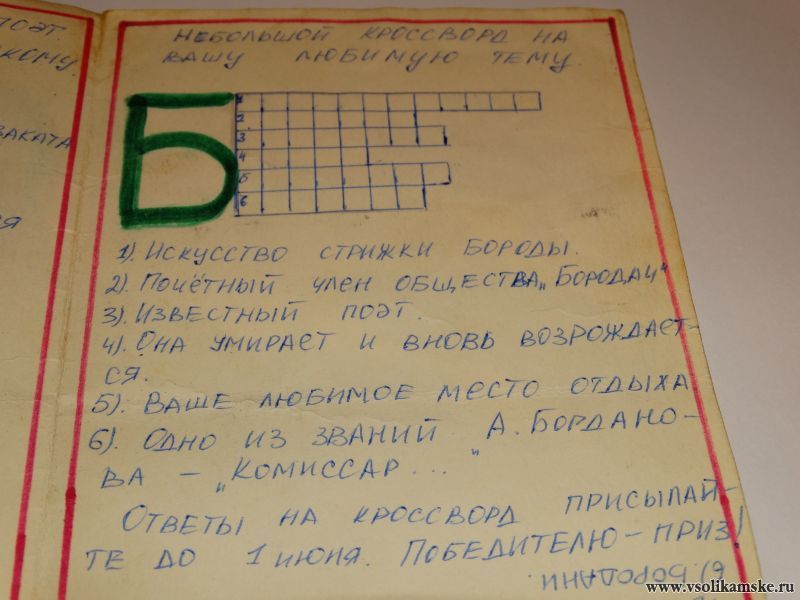 ПОЭТ.
КОМУ.
ЗАКАТА
СЯ
НЕБОЛЬШОЙ КРОССВОРД НА
ВАШУ ЛЮБИМУЮ ТЕМУ.
Б
1
2
3
4
5
6
1). ИСКУССТВО СТРИЖКИ БОРОДЫ.
2). ПОЧЁТНЫЙ ЧЛЕН ОБЩЕСТВА „БОРОДАЧ“
3). ИЗВЕСТНЫЙ ПОЭТ.
4). ОНА УМИРАЕТ И ВНОВЬ ВОЗРОЖДАЕТ-
СЯ.
5). ВАШЕ ЛЮБИМОЕ МЕСТО ОТДЫХА.
6). ОДНО ИЗ ЗВАНИЙ А. БОРДАНО-
ВА – „КОМИССАР ... “
ОТВЕТЫ НА КРОССВОРД ПРИСЫЛАЙ-
ТЕ ДО 1 ИЮНЯ. ПОБЕДИТЕЛЮ – ПРИЗ!
6). БОРОДАЧИ.
www.vsolikamske.ru